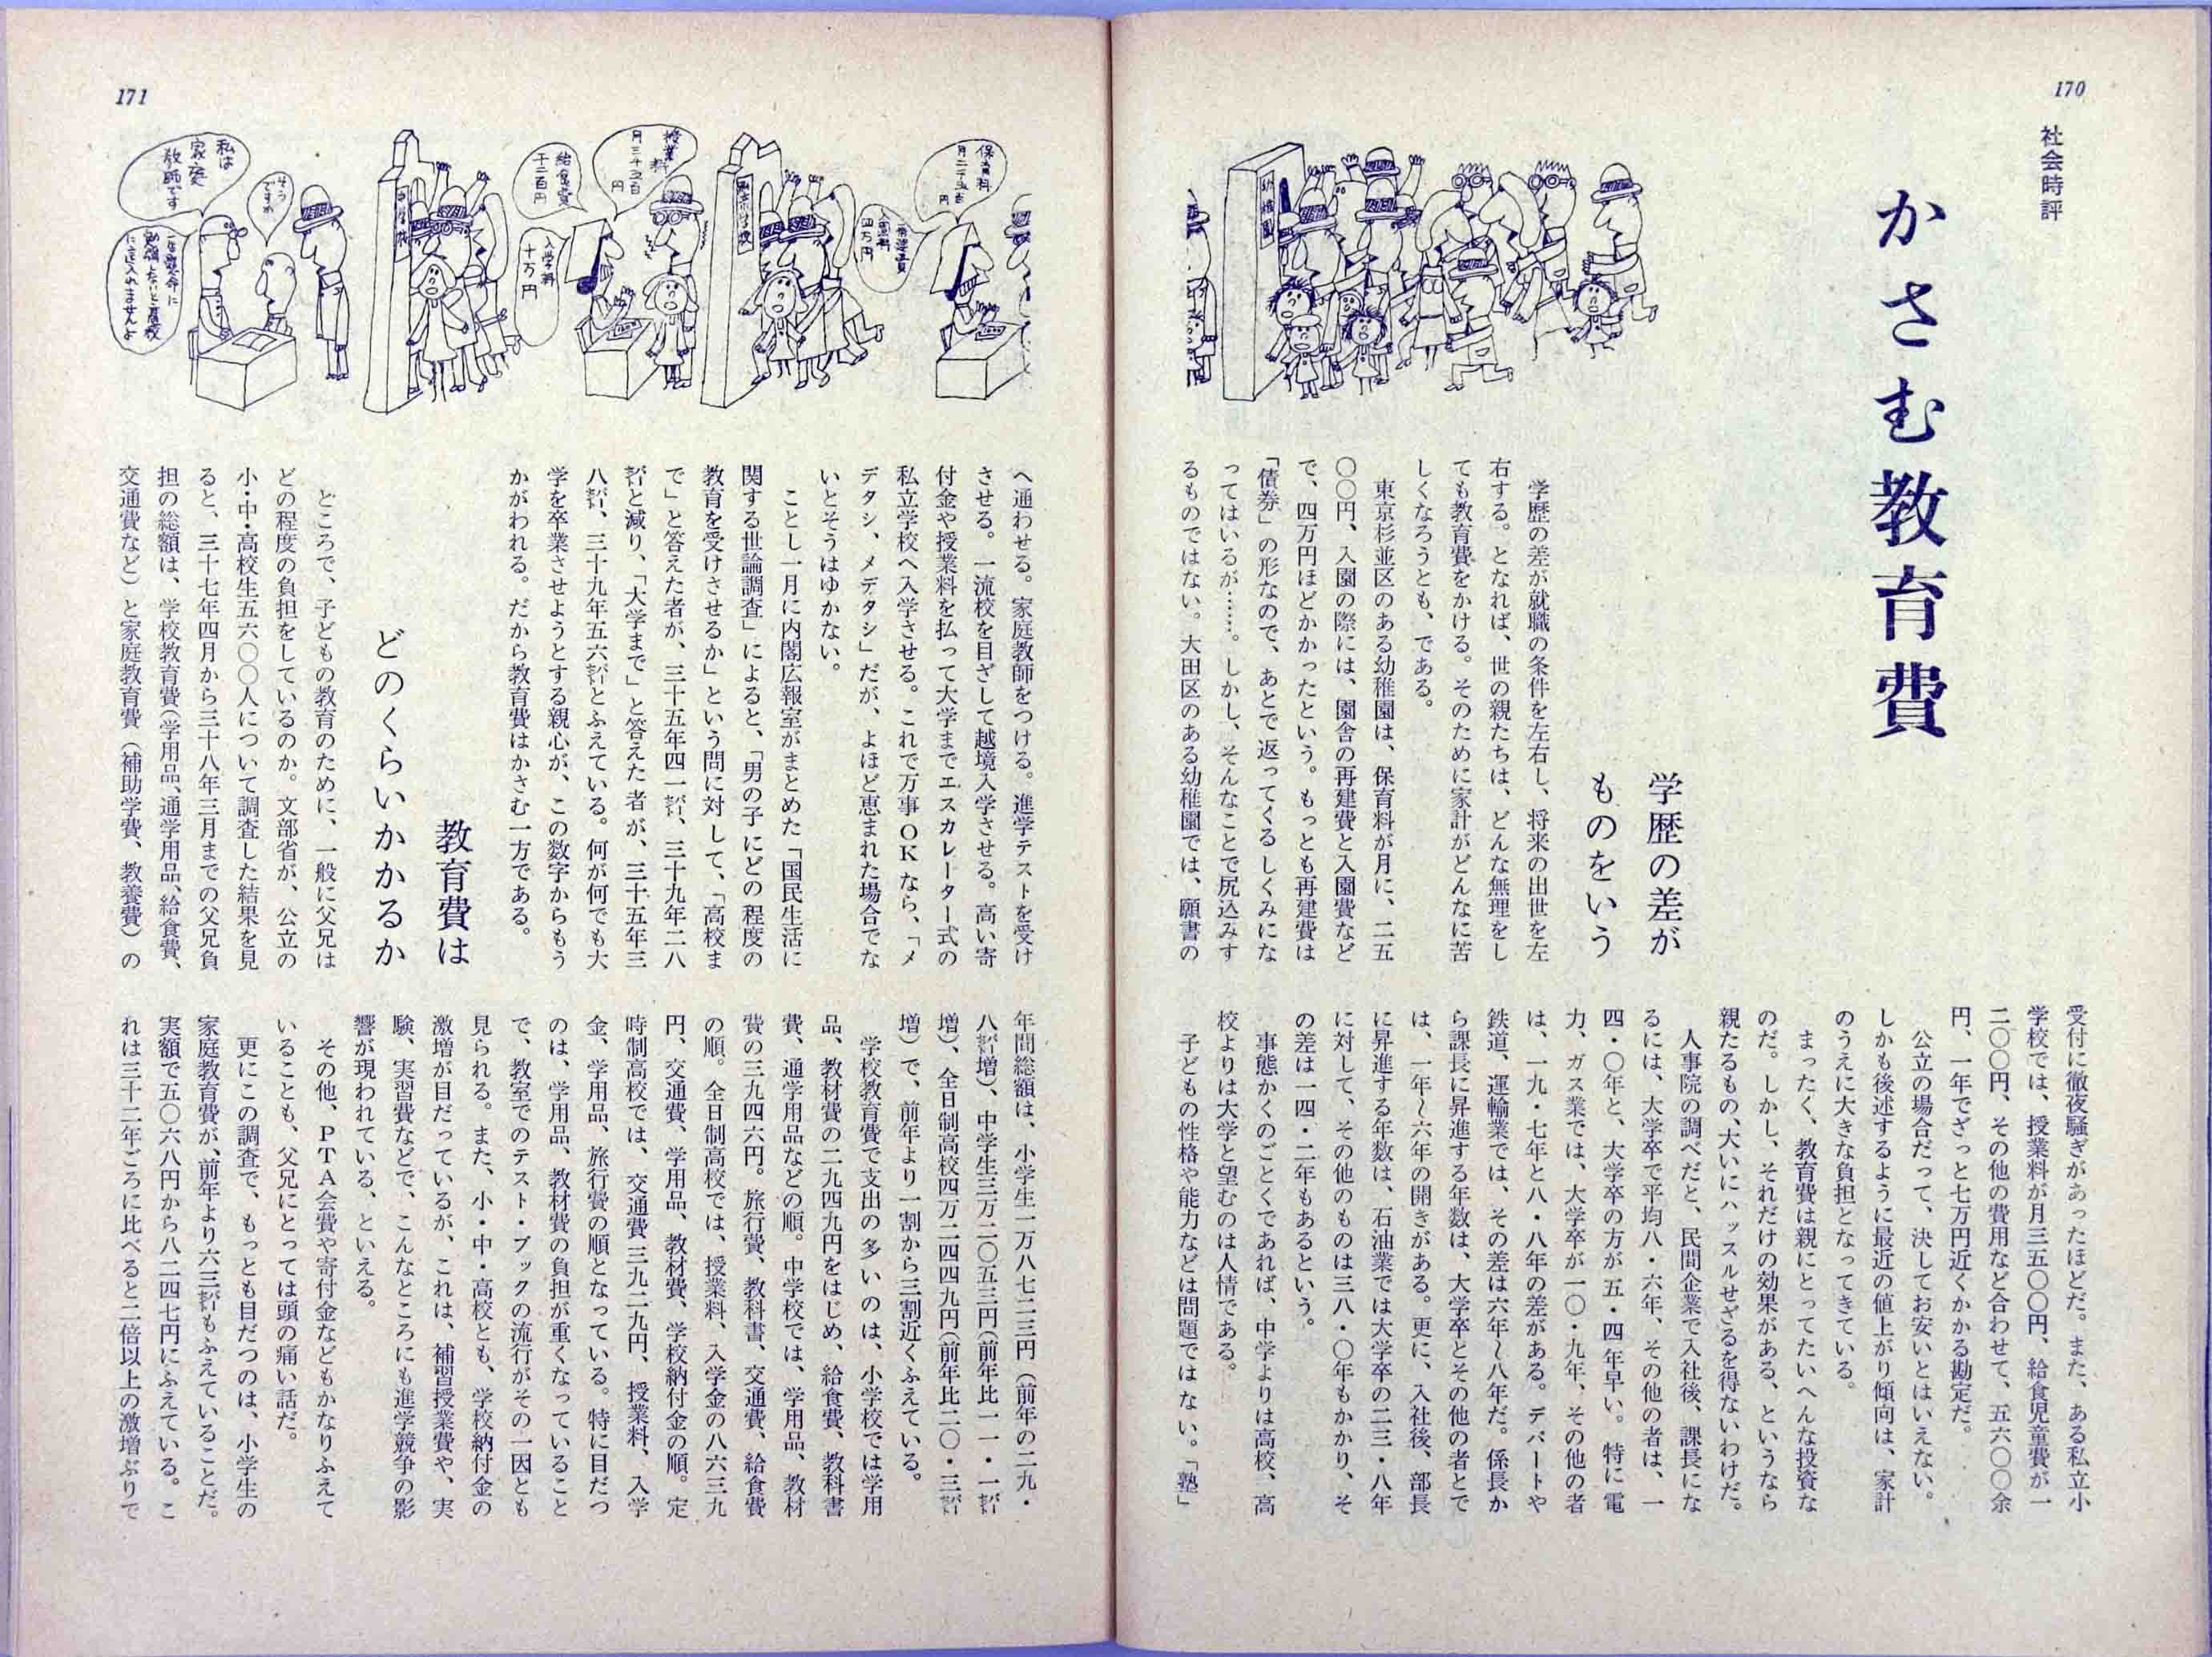 170
社会時評
かさむ教育費
学歴の差が
ものをいう
学歴の差が就職の条件を左右し、将来の出世を左
右する。となれば、世の親たちは、どんな無理をし
ても教育費をかける。そのために家計がどんなに苦
しくなろうとも、である。
東京杉並区のある幼稚園は、保育料が月に、二五
〇〇円、入園の際には、園舎の再建費と入園費など
で、四万円ほどかかったという。もっとも再建費は
「債券」の形なので、あとで返ってくるしくみにな
ってはいるが……。しかし、そんなことで尻込みす
るものではない。大田区のある幼稚園では、願書の
受付に徹夜騒ぎがあったほどだ。また、ある私立小
学校では、授業料が月三五〇〇円、給食児童費が一
二〇〇円、その他の費用など合わせて、五六〇〇余
円、一年でざっと七万円近くかかる勘定だ。
公立の場合だって、決してお安いとはいえない。
しかも後述するように最近の値上がり傾向は、家計
のうえに大きな負担となってきている。
まったく、教育費は親にとってたいへんな投資な
のだ。しかし、それだけの効果がある、というなら
親たるもの、大いにハッスルせざるを得ないわけだ。
人事院の調べだと、民間企業で入社後、課長にな
るには、大学卒で平均八・六年、その他の者は、一
四・〇年と、大学卒の方が五・四年早い。特に電
力、ガス業では、大学卒が一〇・九年、その他の者
は、一九・七年と八・八年の差がある。デパートや
鉄道、運輸業では、その差は六年〜八年だ。係長か
ら課長に昇進する年数は、大学卒とその他の者とで
は、一年〜六年の開きがある。更に、入社後、部長
に昇進する年数は、石油業では大学卒の二三・八年
に対して、その他のものは三八・〇年もかかり、そ
の差は一四・二年もあるという。
事態かくのごとくであれば、中学よりは高校、高
校よりは大学と望むのは人情である。
子どもの性格や能力などは問題ではない。「塾」
171
幼稚園
保育料
月二千五百
円
再建費
入園料
四万円
授業料
月三千五百
円
給食費
千二百円
入学料
十万円
中学校
そう
ですか
私は
家庭
教師です
一生懸命に
勉強しないと高校
には入れませんよ
へ通わせる。家庭教師をつける。進学テストを受け
させる。一流校を目ざして越境入学させる。高い寄
付金や授業料を払って大学までエスカレーター式の
私立学校へ入学させる。これで万事OKなら、「メ
デタシ、メデタシ」だが、よほど恵まれた場合でな
いとそうはゆかない。
ことし一月に内閣広報室がまとめた「国民生活に
関する世論調査」によると、「男の子にどの程度の
教育を受けさせるか」という問に対して、「高校ま
で」と答えた者が、三十五年四一㌫、三十九年二八
㌫と減り、「大学まで」と答えた者が、三十五年三
八㌫、三十九年五六㌫とふえている。何が何でも大
学を卒業させようとする親心が、この数字からもう
かがわれる。だから教育費はかさむ一方である。
教育費は
どのくらいかかるか
ところで、子どもの教育のために、一般に父兄は
どの程度の負担をしているのか。文部省が、公立の
小・中・高校生五六〇〇人について調査した結果を見
ると、三十七年四月から三十八年三月までの父兄負
担の総額は、学校教育費(学用品、通学用品、給食費、
交通費など)と家庭教育費(補助学費、教養費)の
年間総額は、小学生一万八七二三円(前年の二九・
八㌫増)、中学生三万二〇五三円(前年比一一・一㌫
増)、全日制高校四万二四四九円(前年比二〇・三㌫
増)で、前年より一割から三割近くふえている。
学校教育費で支出の多いのは、小学校では学用
品、教材費の二九四九円をはじめ、給食費、教科書
費、通学用品などの順。中学校では、学用品、教材
費の三九四六円。旅行費、教科書、交通費、給食費
の順。全日制高校では、授業料、入学金の八六三九
円、交通費、学用品、教材費、学校納付金の順。定
時制高校では、交通費三九二九円、授業料、入学
金、学用品、旅行費の順となっている。特に目だつ
のは、学用品、教材費の負担が重くなっていること
で、教室でのテスト・ブックの流行がその一因とも
見られる。また、小・中・高校とも、学校納付金の
激増が目だっているが、これは、補習授業費や、実
験、実習費などで、こんなところにも進学競争の影
響が現われている、といえる。
その他、PTA会費や寄付金などもかなりふえて
いることも、父兄にとっては頭の痛い話だ。
更にこの調査で、もっとも目だつのは、小学生の
家庭教育費が、前年より六三㌫もふえていることだ。
実額で五〇六八円から八二四七円にふえている。こ
れは三十二年ごろに比べると二倍以上の激増ぶりで